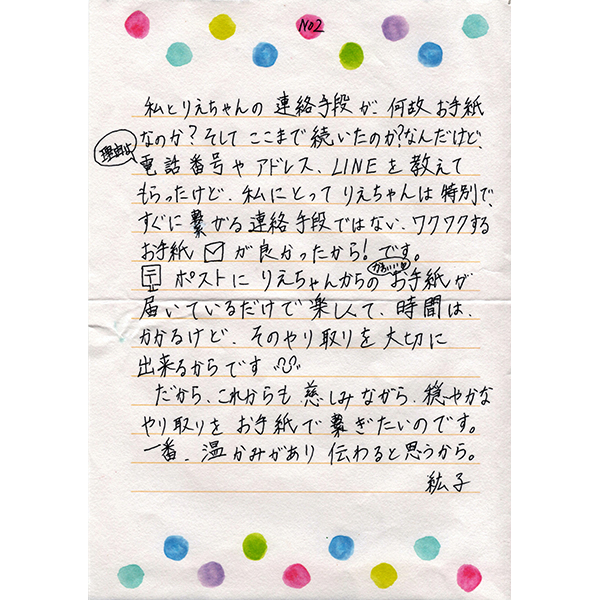 No2
私とりえちゃんの連絡手段が、何故お手紙
なのか？そしてここまで続いたのか？なんだけど、
理由は
電話番号やアドレス、LINEを教えて
もらったけど、私にとってりえちゃんは特別で、
すぐに繋がる連絡手段ではない、ワクワクする
お手紙が良かったから！です。
かわいい
ポストにりえちゃんからのお手紙が
届いているだけで楽しくて、時間は、
かかるけど、そのやり取りを大切に
出来るからです
だから、これからも慈しみながら、穏やかな
やり取りをお手紙で繋ぎたいのです。
一番、温かみがあり伝わると思うから。
紘子